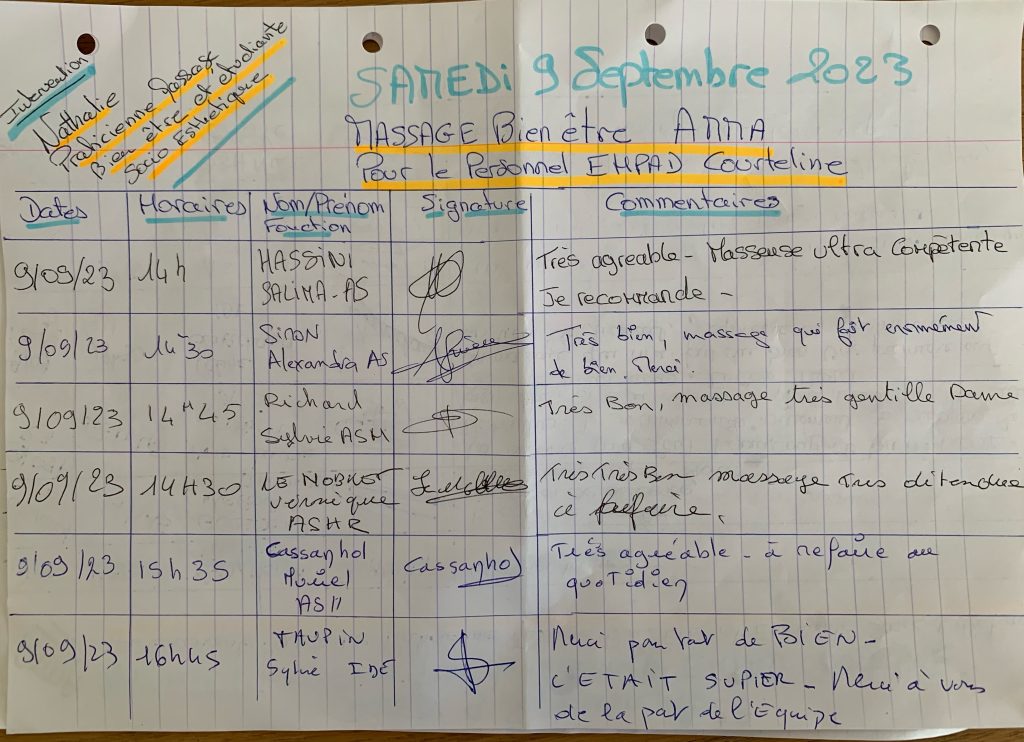 Intervention
Nathalie
Praticienne Massage
Bien être et étudiante
Socio Esthétique
SAMEDI 9 Septembre 2023
MASSAGE Bien être AMMA
Pour le Personnel EHPAD Courteline
Dates Horaires Nom/Prénom Signature Commentaires
Fonction
9/09/23 14h HASSINI
SALIMA-AS
Très agreable - Masseuse ultra Compêtente
Je recommande -
9/09/23 14h30 Simon
Alexandra AS
Très bien, massage qui fait enormément
de bien. Merci.
9/09/23 14H45 Richard
Sylvie ASH
Très Bon, massage très gentille Dame
9/09/23 14H30 LE NOBRET
veronique
ASHR
Très Très Bon massage Tres ditendue
à refaire.
9/09/23 15h35 Cassanhol
Muriel
ASH
Cassanhol
Très agréable - à refaire au
quotidien
9/09/23 16h45 TAUPIN
Sylvie IDE
Merci pour tat de BIEN -
C'ETAIT SUPER - Merci à vous
de la part de l'Equipe